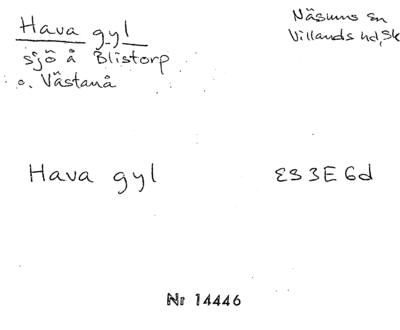 Hava gyl
sjö å Blistorp
o. Västanå
Näsums sn
Villands hd, Sk
Hava gyl
ES 3E 6d
Nr 14446